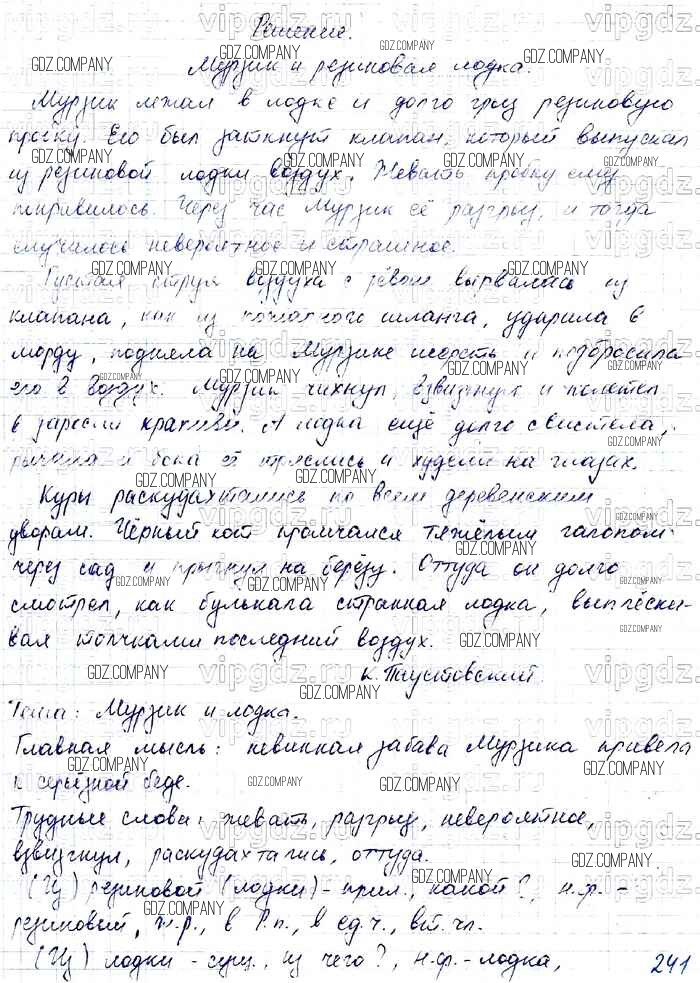 Решение.
Мурзик и резиновая лодка.
Мурзик лежал в лодке и долго грыз резиновую
пробку. Ею был заткнут клапан, который выпускал
из резиновой лодки воздух. Жевать пробку ему
понравилось. Через час Мурзик её разгрыз, и тогда
случилось невероятное и страшное.
Густая струя воздуха с рёвом вырвалась из
клапана, как из пожарного шланга, ударила в
морду, подняла на Мурзике шерсть и подбросила
его в воздух. Мурзик чихнул, взвизгнул и полетел
в заросли крапивы. А лодка ещё долго свистела,
рычала и бока её тряслись и худели на глазах.
Куры раскудахтались по всем деревенским
дворам. Чёрный кот промчался тяжёлым галопом
через сад и прыгнул на берёзу. Оттуда он долго
смотрел, как булькала странная лодка, выплёски-
вая толчками последний воздух.
К. Паустовский.
Тема: Мурзик и лодка.
Главная мысль: невинная забава Мурзика привела
к серьёзной беде.
Трудные слова: жевать, разгрыз, невероятное,
взвизгнул, раскудахтались, оттуда.
(Из) резиновой (лодки) - прил., какой?, н.ф. -
резиновый, ж.р., в Р.п., в ед.ч., вт. чл.
(Из) лодки - сущ., из чего?, н.ф. - лодка,
241
GDZ.COMPANY
vipgdz.ru